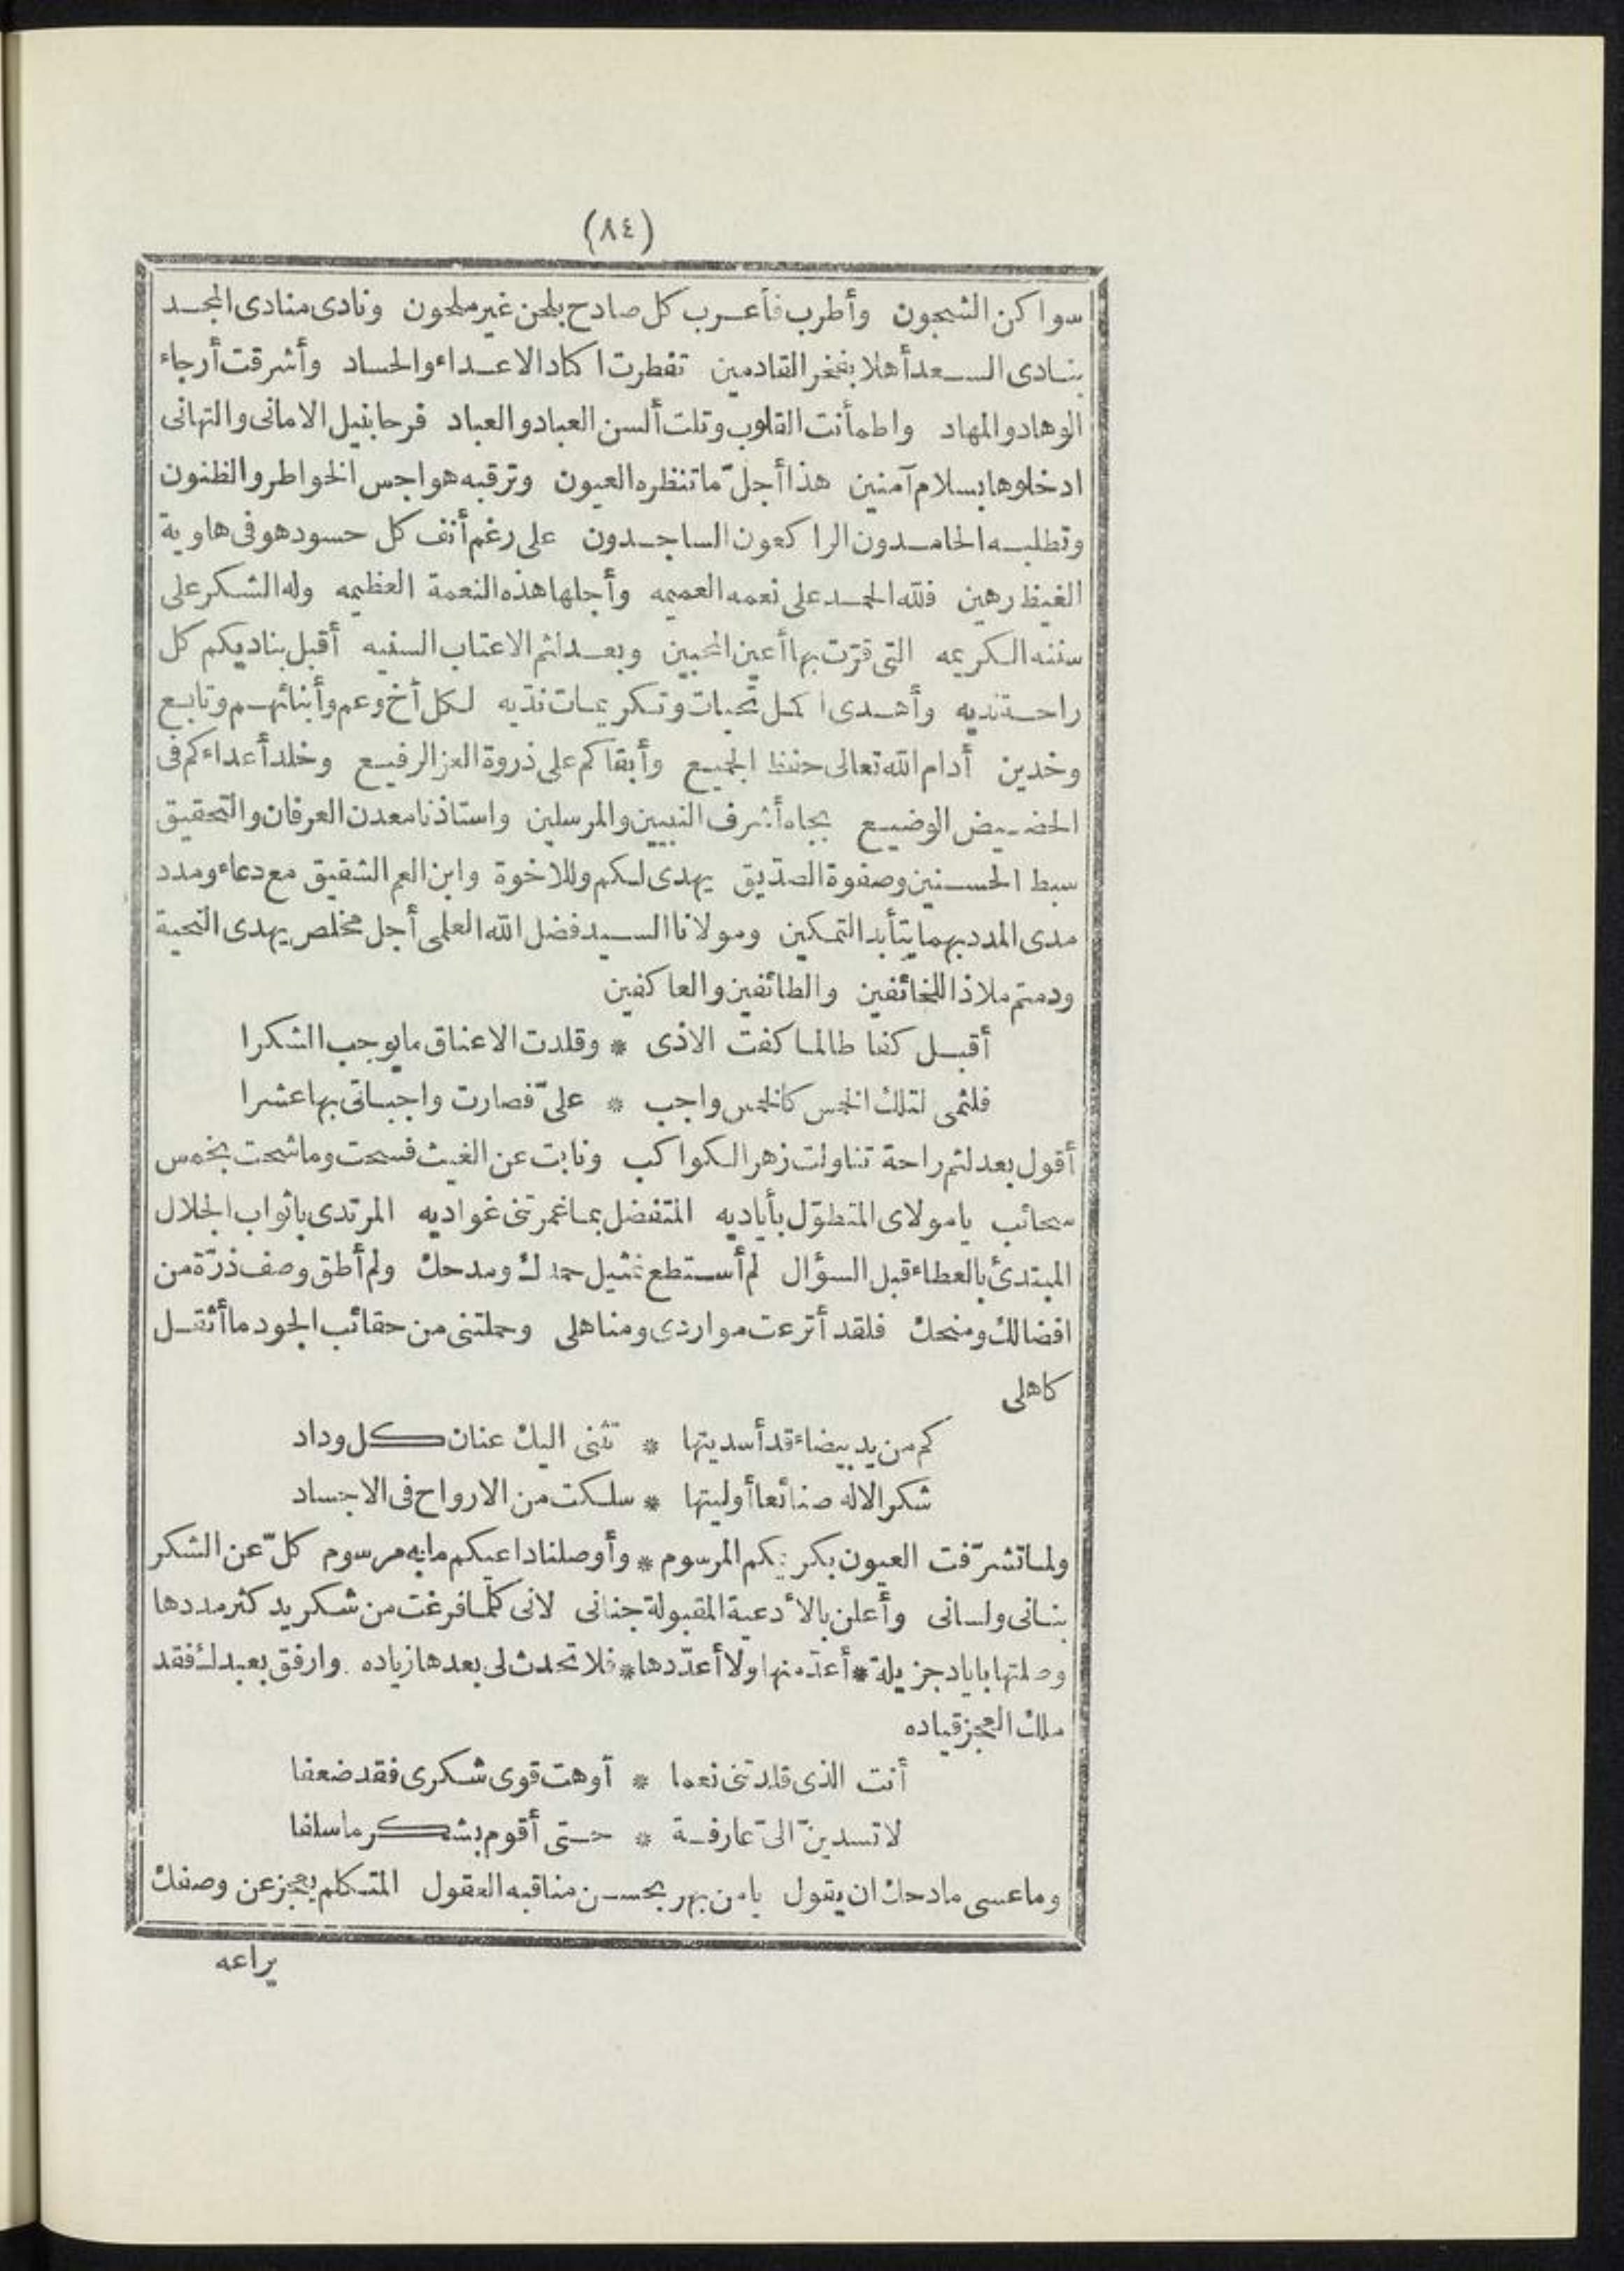 (٨٤)
سواكن الشجون وأطرب فأعرب كل صادح بلحن غير ملحون ونادى منادى المجد
بنادى السعد أهلا بفخر القادمين تفطرت اكاد الاعداء والحساد وأشرقت أرجاء
الوهاد والمهاد واطمأنت القلوب وتلت ألسن العباد والعباد فرحا بنيل الامانى والتهانى
ادخلوها بسلام آمنين هذا أجلّ ما تنظره العيون وترقبه هواجس الخواطر والظنون
وتطلبه الحامدون الراكعون الساجدون على رغم أنف كل حسود هو فى هاوية
الغيظ رهين فلله الحمد على نعمه العميمه وأجلها هذه النعمة العظيمه وله الشكر على
سننه الكريمه التى قرّت بها أعين المحبين وبعد لثم الاعتاب السنيه أقبل بناديكم كل
راحة نديه وأهدى اكمل تحيات وتكريمات نديه لكل أخ وعم وأبنائهم وتابع
وخدين أدام الله تعالى حفظ الجميع وأبقاكم على ذروة العز الرفيع وخلد أعداءكم فى
الحضيض الوضيع بجاه أشرف النبيين والمرسلين واستاذنا معدن العرفان والتحقيق
سبط الحسنين وصفوة الصدّيق يهدى لكم وللاخوة وابن العم الشقيق مع دعاء ومدد
مدى المدد بهما يتأبد التمكين ومولانا السيد فضل الله العلمى أجل مخلص يهدى التحية
ودمتم ملاذا للخائفين والطائفين والعاكفين
أقبل كفا طالما كفت الاذى * وقلدت الاعناق ما يوجب الشكرا
فلثمى لتلك الخمس كالخمس واجب * علىّ فصارت واجباتى بها عشرا
أقول بعد لثم راحة تناولت زهر الكواكب ونابت عن الغيث فسحت وما شحت بخمس
سحائب يا مولاى المتطوّل بأياديه المتفضل بما غمرتنى غواديه المرتدى باثواب الجلال
المبتدئ بالعطاء قبل السؤال لم أستطع تمثيل حمدك ومدحك ولم أطق وصف ذرّة من
افضالك ومنحك فلقد أترعت مواردى ومناهلى وحملتنى من حقائب الجود ما أثقل
كاهلى
كم من يد بيضاء قد أسديتها * تثنى اليك عنان كل وداد
شكر الاله صنائعا أوليتها * سلكت من الارواح فى الاجساد
ولما تشرّفت العيون بكريمكم المرسوم * وأوصلنا داعيكم ما به مرسوم كلّ عن الشكر
بنانى ولسانى وأعلن بالأدعية المقبولة جنانى لانى كلما فرغت من شكر يد كثر مددها
وصلتها باياد جزيلة * أعدّ منها ولا أعدّدها * فلا تحدث لى بعدها زياده وارفق بعبدك فقد
ملك العجز قياده
أنت الذى قلدتنى نعما * أوهت قوى شكرى فقد ضعفا
لا تسدينّ الىّ عارفة * حتى أقوم بشكر ما سلفا
وما عسى مادحك ان يقول يا من بهر بحسن مناقبه العقول المتكلم يعجز عن وصفك
يراعه